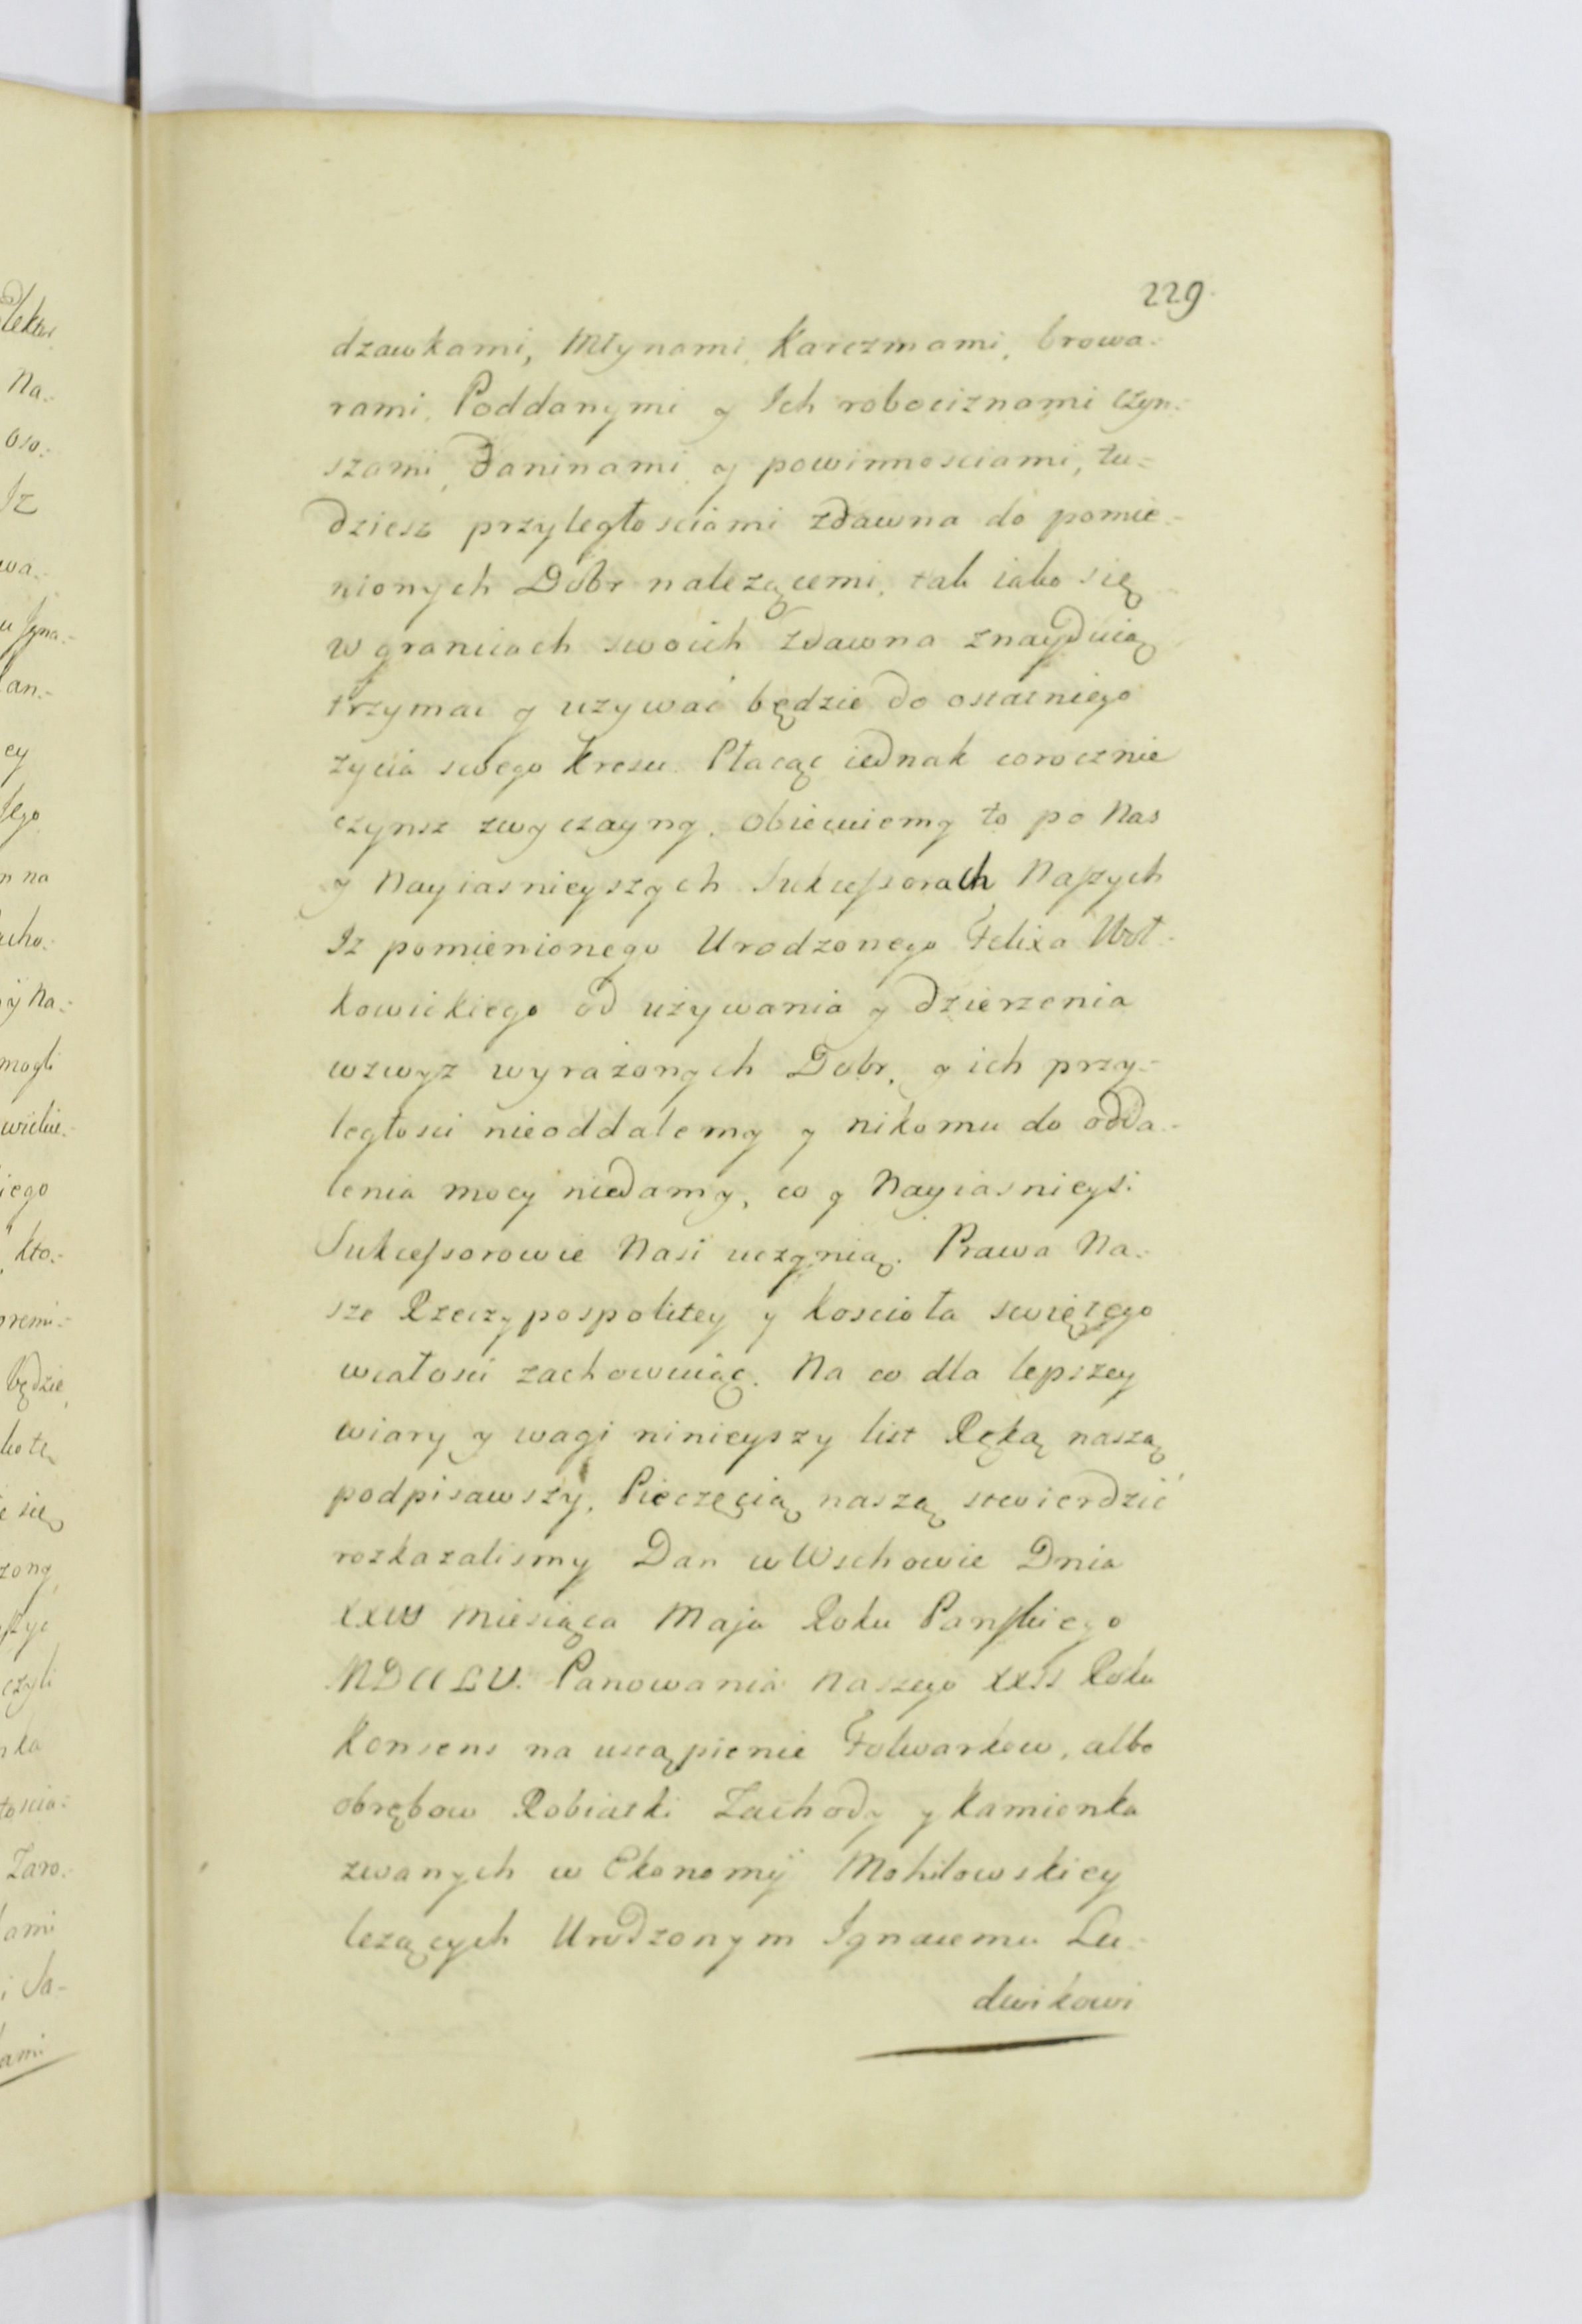 229.
dzawkami, Młynami, Karczmami, browa-
rami, Poddanymi y Ich robociznami czyn-
szami, Daninami y powinnosciami, tu-
dziesz przyległosciami zdawna do pomie-
nionych Dobr należącemi, tak iako się
w granicach swoich zdawna znayduią
trzymac y uzywać będzie do ostatniego
życia swego kresu. Płacąc iednak corocznie
czynsz zwyczayny. Obiecuiemy to po Nas
y Nayiasnieyszych Sukcessorach Naszych
Iz pomienionego Urodzonego Felixa Woł-
kowickiego od używania y dzierzenia
wzwyz wyrażonych Dobr, y ich przy-
ległosci nieoddalemy y nikomu do odda-
lenia mocy niedamy, co y Nayiasnieysi
Sukcessorowie Nasi uczynią. Prawa Na-
sze Rzeczypospolitey y koscioła swiętego
wcałosci zachowuiąc. Na co dla lepszey
wiary y wagi ninieyszy list Ręką naszą
podpisawszy, Pieczęcią naszą stwierdzić
rozkazalismy Dan w Wschowie Dnia
miesiąca Maja Roku Panskiego
Panowania Naszego XXII Roku
Konsens na ustąpienie Folwarkow, albo
obrębow Robiatki Zachody y Kamionka
zwanych w Ekonomij Mohilowskiey
lezących Urodzonym Ignacemu Lu-
dwikowi